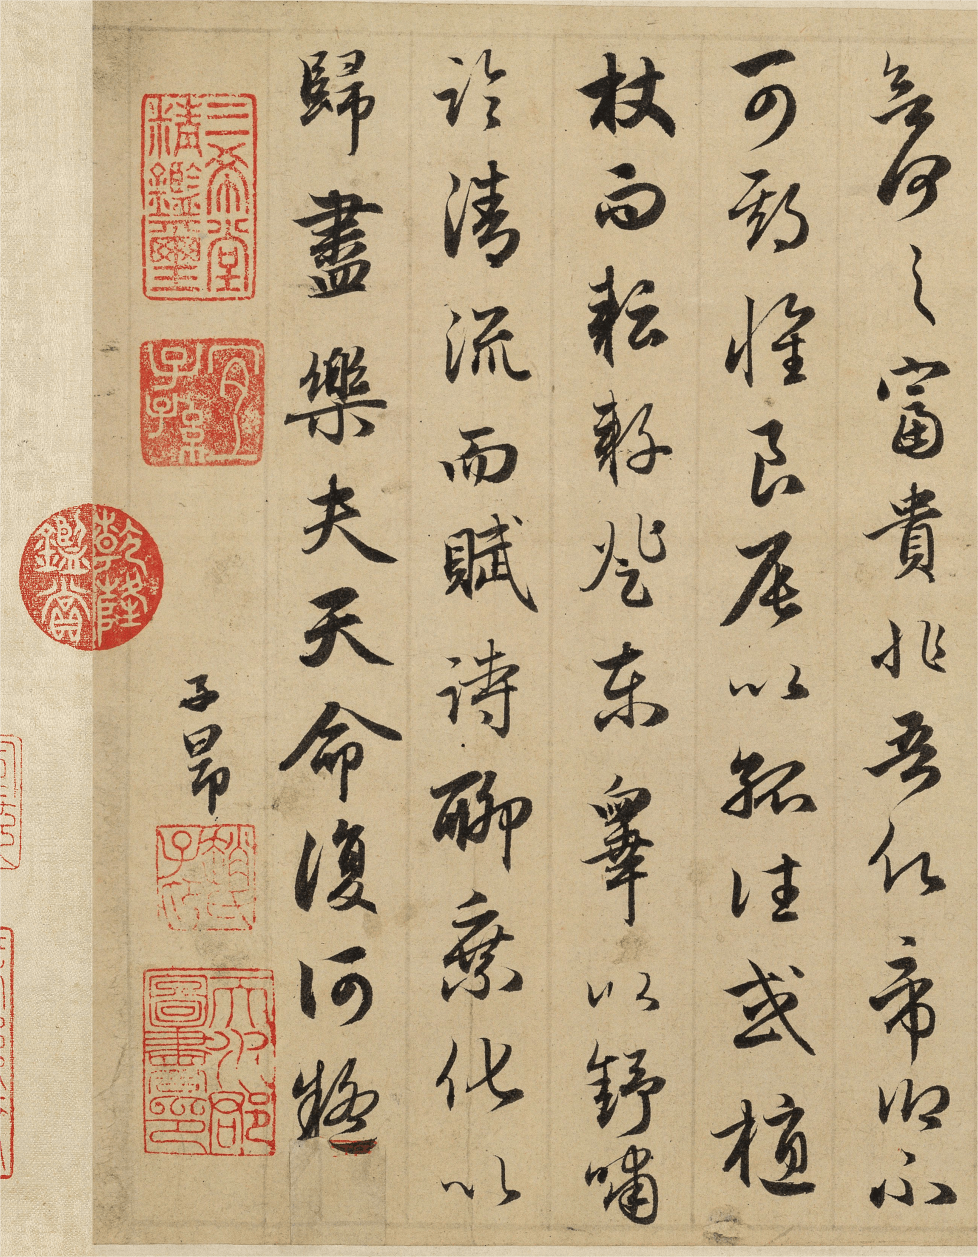 欲何之富貴非吾願帝鄉不
可期懷良辰以孤往或植
杖而耘耔登東皋以舒嘯
臨清流而賦詩聊乘化以
歸盡樂夫天命復何疑
子昂
三希堂精鑑璽
宜子孫
乾隆鑑賞
趙氏子昂
天水郡圖書印